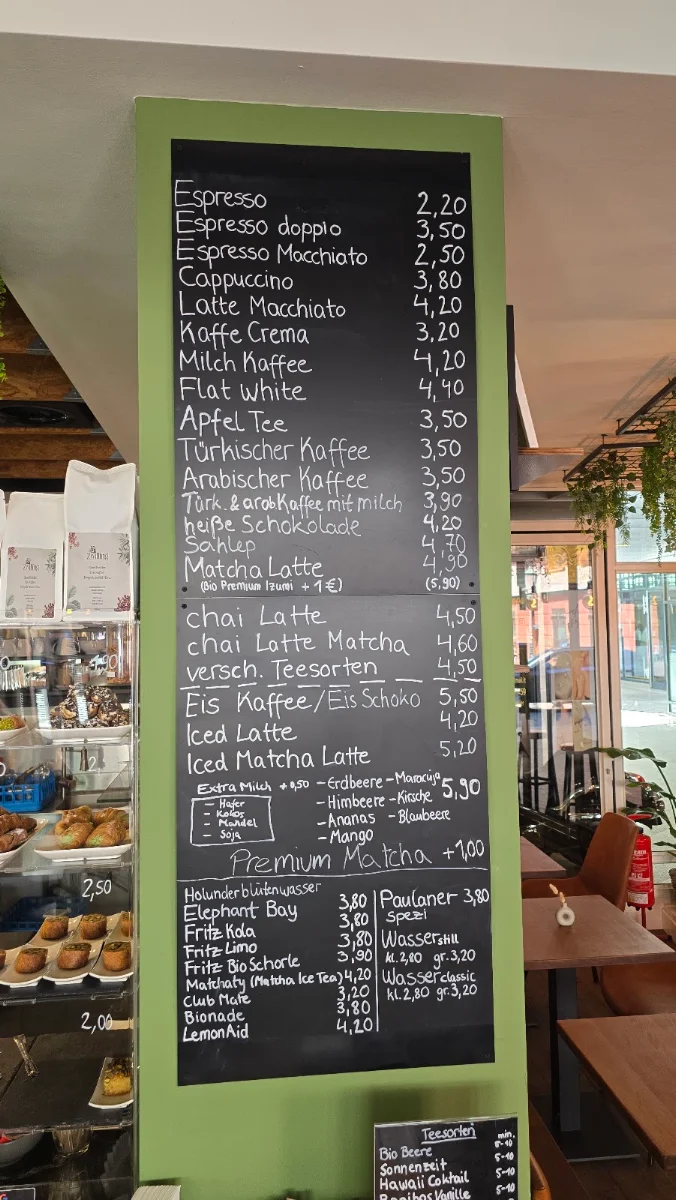 Espresso 2,20
Espresso doppio 3,50
Espresso Macchiato 2,50
Cappuccino 3,80
Latte Macchiato 4,20
Kaffe Crema 3,20
Milch Kaffee 4,20
Flat white 4,40
Apfel Tee 3,50
Türkischer Kaffee 3,50
Arabischer Kaffee 3,50
Türk. & arab. Kaffee mit milch 3,90
heiße Schokolade 4,20
Sahlep 4,70
Matcha Latte 4,90
(Bio Premium Izumi +1€) (5,90)
chai Latte 4,50
chai Latte Matcha 4,60
versch. Teesorten 4,50
Eis Kaffee/Eis Schoko 5,50
Iced Latte 4,20
Iced Matcha Latte 5,20
Extra Milch +0,50
- Hafer
- Kokos
- Mandel
- Soja
- Erdbeere - Maracuja 5,90
- Himbeere - Kirsche
- Ananas - Blaubeere
- Mango
Premium Matcha +1,00
Holunderblütenwasser
Elephant Bay 3,80
Fritz Kola 3,80
Fritz Limo 3,80
Fritz Bio Schorle 3,90
Matchaty (Matcha Ice Tea) 4,20
Club Mate 3,20
Bionade 3,80
LemonAid 4,20
Paulaner 3,80
Spezi
Wasser still
kl. 2,80 gr. 3,20
Wasser classic
kl. 2,80 gr. 3,20
2,50
2,00
Teesorten min.
Bio Beere 5-10
Sonnenzeit 5-10
Hawaii Coktail 5-10
Rooibos Vanille 5-10